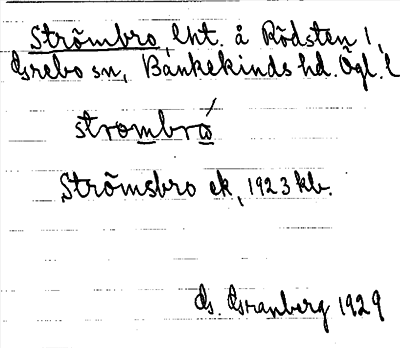 Strömbro, lht. å Rödsten 1,
Grebo sn, Bankekinds hd. Ögl. l
strombro
Strömsbro ek, 1923 kb.
G. Granberg 1929